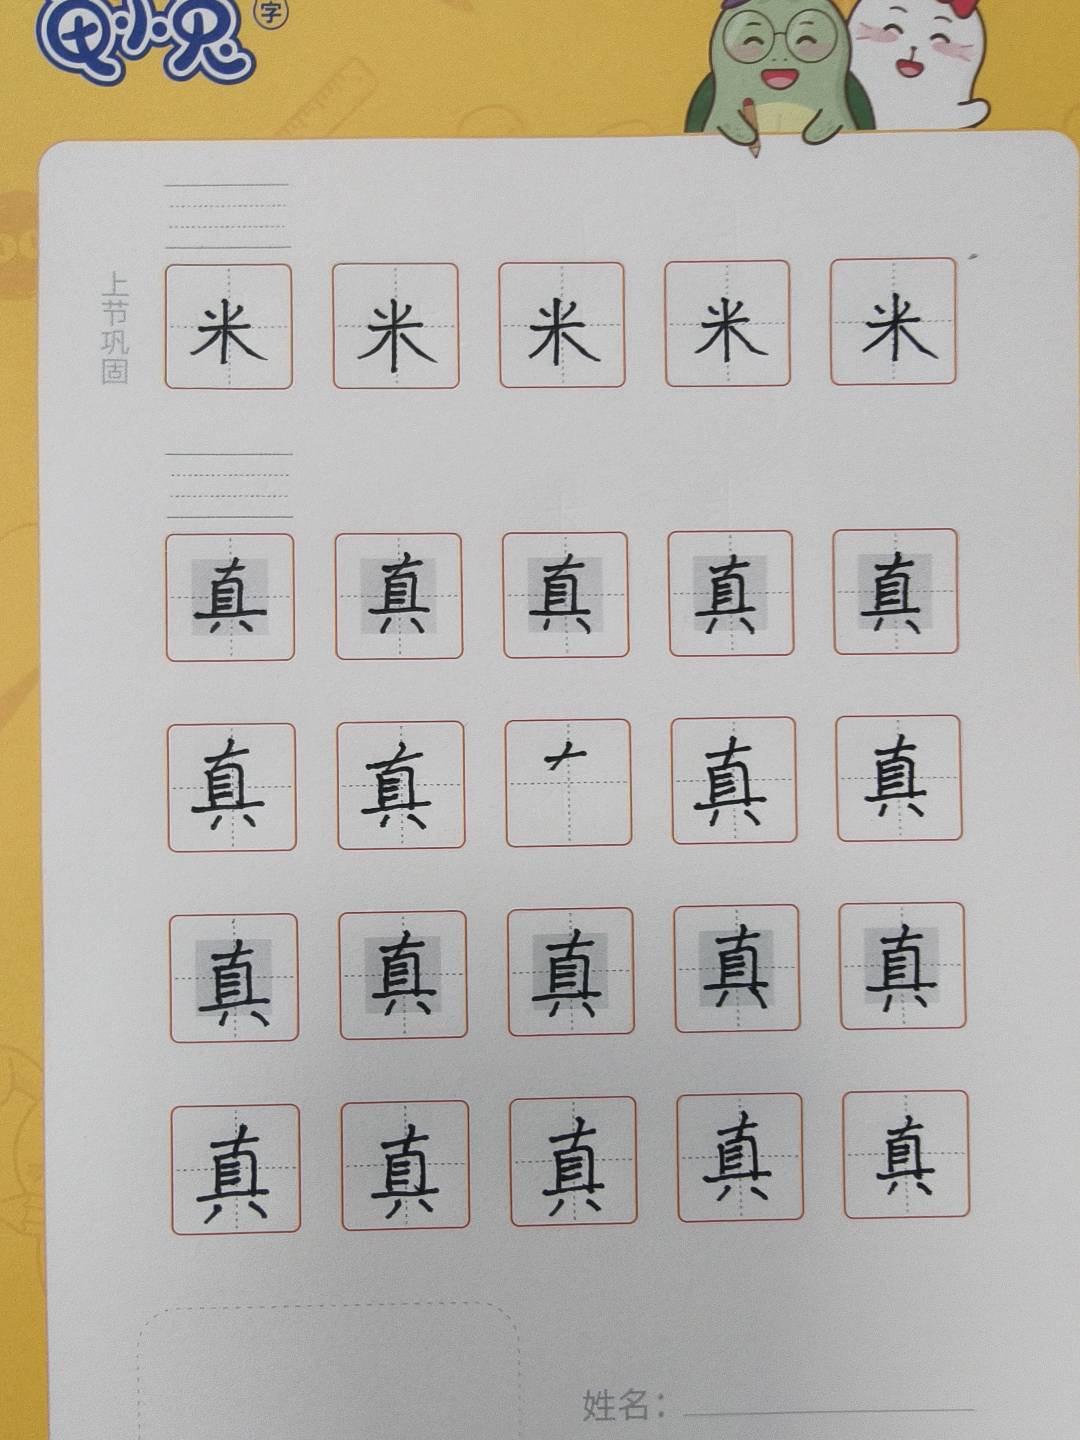 字
上节巩固
米 米 米 米 米
真 真 真 真 真
真 真 真 真
真 真 真 真 真
真 真 真 真 真
姓名：